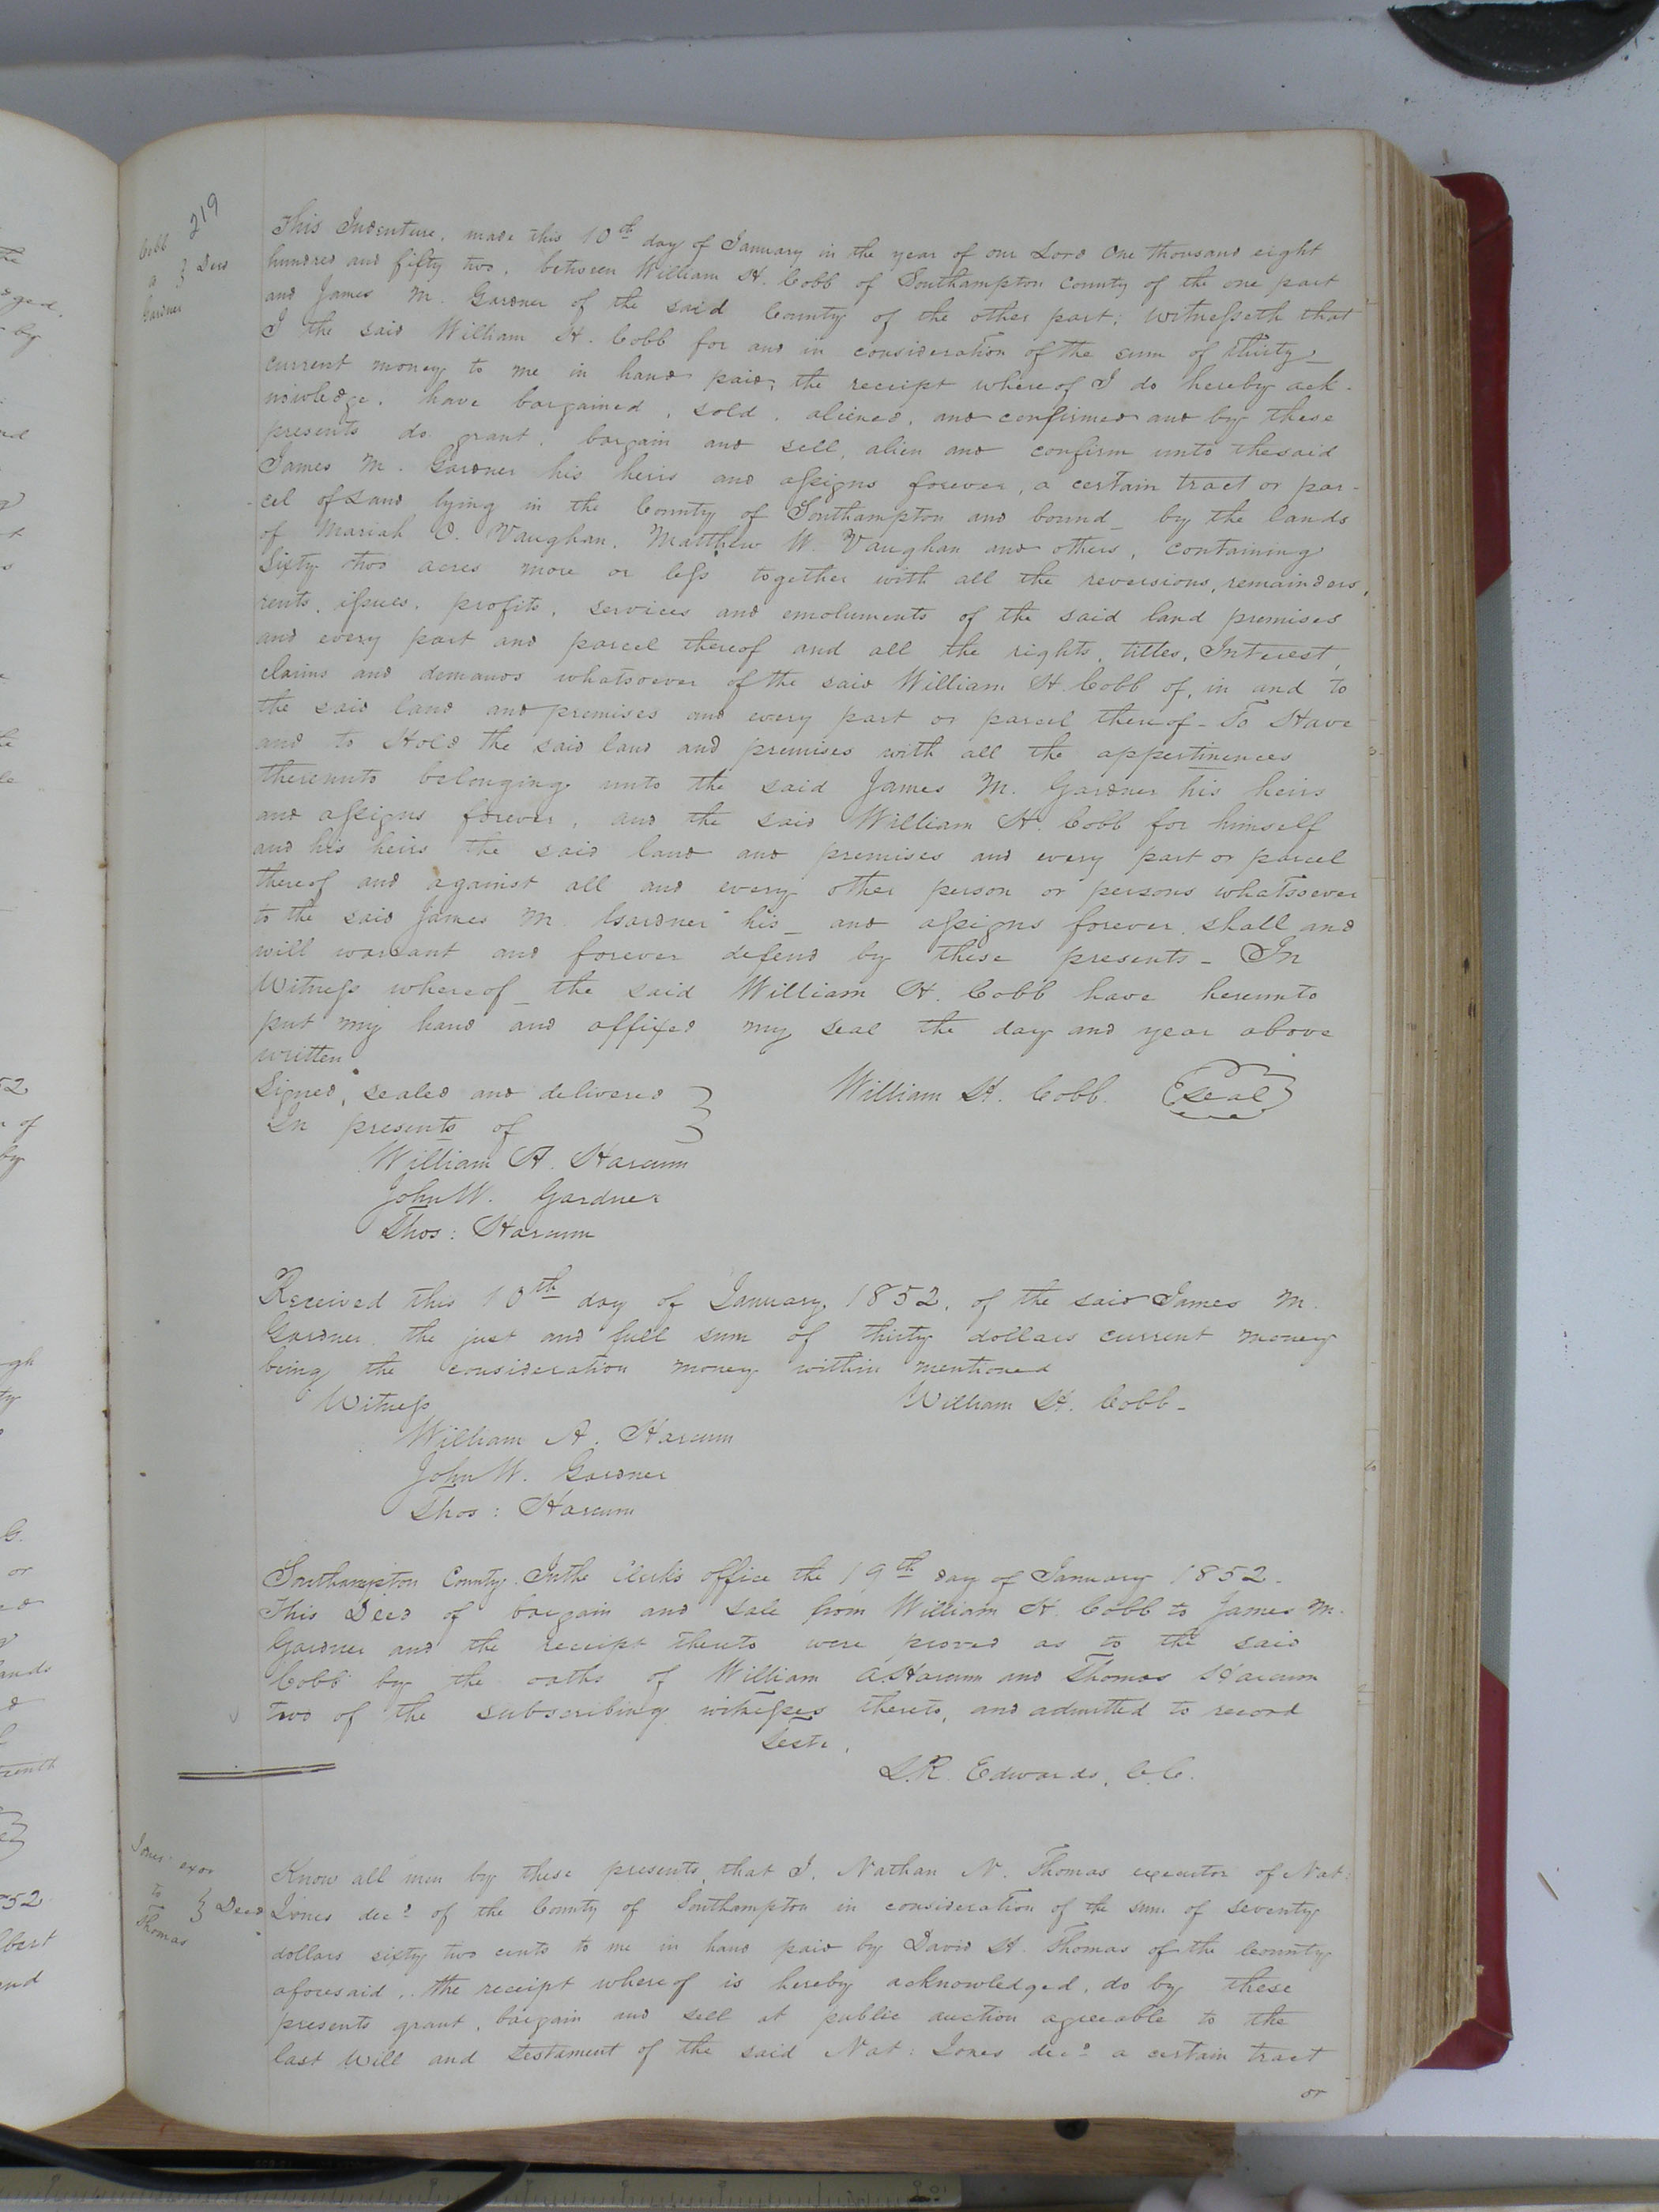 219
Cobb
a } Deed
Gardner
This Indenture, made this 10th day of January in the year of our Lord One thousand eight
hundred and fifty two, between William H. Cobb of Southampton County of the one part
and James M. Gardner of the said County of the other part; Witnesseth that
I the said William H. Cobb for and in consideration of the sum of thirty_
current money to me in hand paid, the receipt whereof I do hereby ack-
nowledge, have bargained, sold, aliened, and confirmed and by these
presents do grant, bargain and sell, alien and confirm unto the said
James M. Gardner his heirs and assigns forever, a certain tract or par-
cel of Land lying in the County of Southampton and bound_ by the lands
of Mariah O. Vaughan, Matthew W. Vaughan and others, containing
Sixty two acres more or less together with all the reversions, remainders,
rents, issues, profits, services and emoluments of the said land premises
and every part and parcel thereof and all the rights, titles, Interest,
claims and demands whatsoever of the said William H. Cobb of, in and to
the said land and premises and every part or parcel thereof - To Have
and to Hold the said land and premises with all the appertinences
thereunto belonging unto the said James M. Gardner his heirs
and assigns forever, and the said William H. Cobb for himself
and his heirs the said land and premises and every part or parcel
thereof and against all and every other person or persons whatsoever
to the said James M. Gardner his_ and assigns forever shall and
will warrant and forever defend by these presents - In
Witness whereof_ the said William H. Cobb have hereunto
put my hand and affixed my seal the day and year above
written.
Signed, sealed and delivered } William H. Cobb. (Seal)
In presents of
William A. Harcum
John W. Gardner
Thos: Harcum
Received this 10th day of January, 1852, of the said James M.
Gardner the just and full sum of thirty dollars current money
being the consideration money within mentioned
Witness William H. Cobb-
William A. Harcum
John W. Gardner
Thos: Harcum
Southampton County. In the Clerk's office the 19th day of January 1852.
This Deed of bargain and sale from William H. Cobb to James M.
Gardner and the receipt thereto were proved as to the said
Cobb by the oaths of William A. Harcum and Thomas Harcum
two of the subscribing witnesses thereto, and admitted to record
Teste,
L.R. Edwards, C.C.
Jones' exor
to } Deed
Thomas
Know all men by these presents, that I, Nathan N. Thomas executor of Nat:
Jones decd of the County of Southampton in consideration of the sum of seventy
dollars sixty two cents to me in hand paid by David H. Thomas of the County
aforesaid, the receipt whereof is hereby acknowledged, do by these
presents grant, bargain and sell at public auction agreeable to the
last Will and testament of the said Nat: Jones decd a certain tract
or